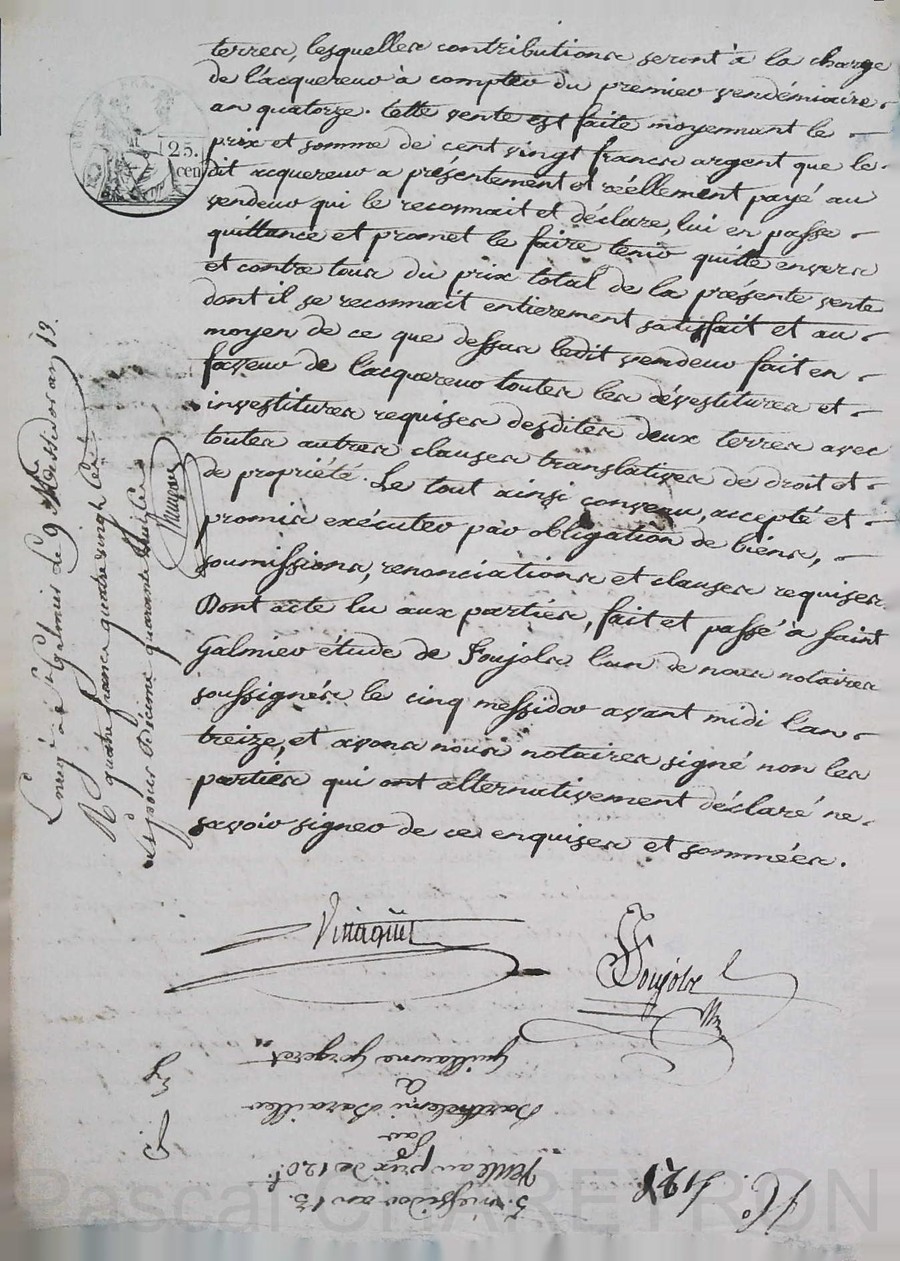 terres, lesquelles contributions seront à la charge
de l'acquereur à compter du premier vendémiaire
an quatorze. Cette vente est faite moyennant le
prix et somme de cent vingt francs argent que le
dit acquereur a présentement et réellement payé au
vendeur qui le reconnait et déclare, lui en passe
quittance et promet le faire tenir quitte envers
et contre tous du prix total de la présente vente
dont il se reconnait entierement satisfait et au
moyen de ce que dessus ledit vendeur fait en
faveur de l'acquereur toutes les dévestitures et
investitures requises desdites deux terres avec
toutes autres clauses translatives de droit et
de propriété. Le tout ainsi convenu, accepté et
promis exécuter par obligation de biens,
soumissions, renonciations et clauses requises.
Dont acte lu aux parties, fait et passé à saint
Galmier étude de Foujols l'un de nous notaires
soussignés le cinq messidor avant midi l'an
treize, et avons nous notaires signé non les
parties qui ont alternativement déclaré ne
savoir signer de ce enquises et sommées.
125.
cen
à St Galmier le 9 Messidor an 13.
R quatre francs quatre vingt
et pour Décime quarante huit
Vinaquet
Foujols
5. messidor an 13.
Vente au prix de 120f
Par
Barthelemi Barailler
à
Guillaume Gorgeret
Pascal CHAREYRON